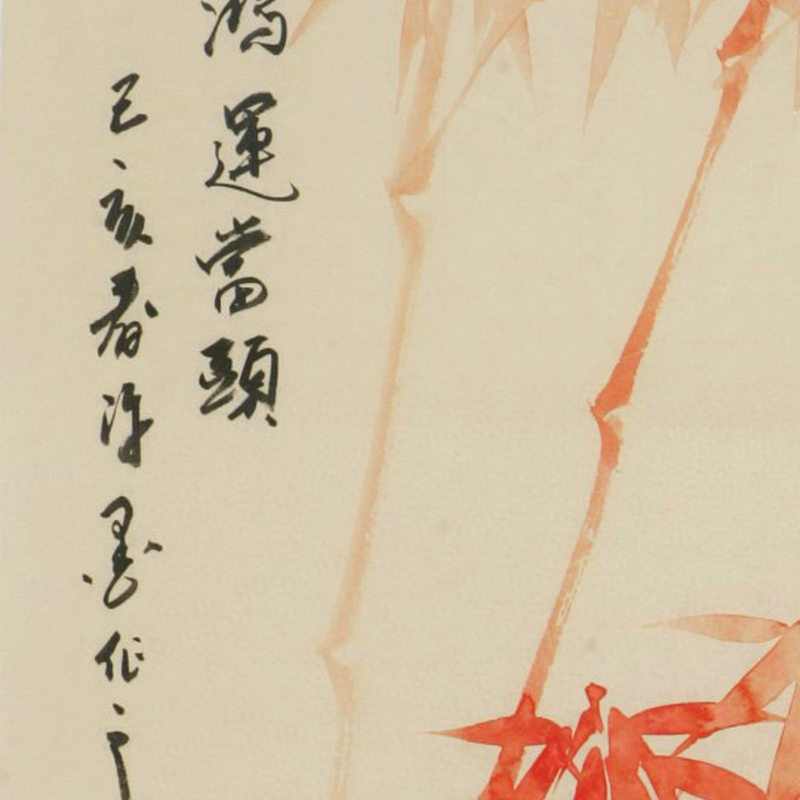 鴻運當頭
己亥春净墨作